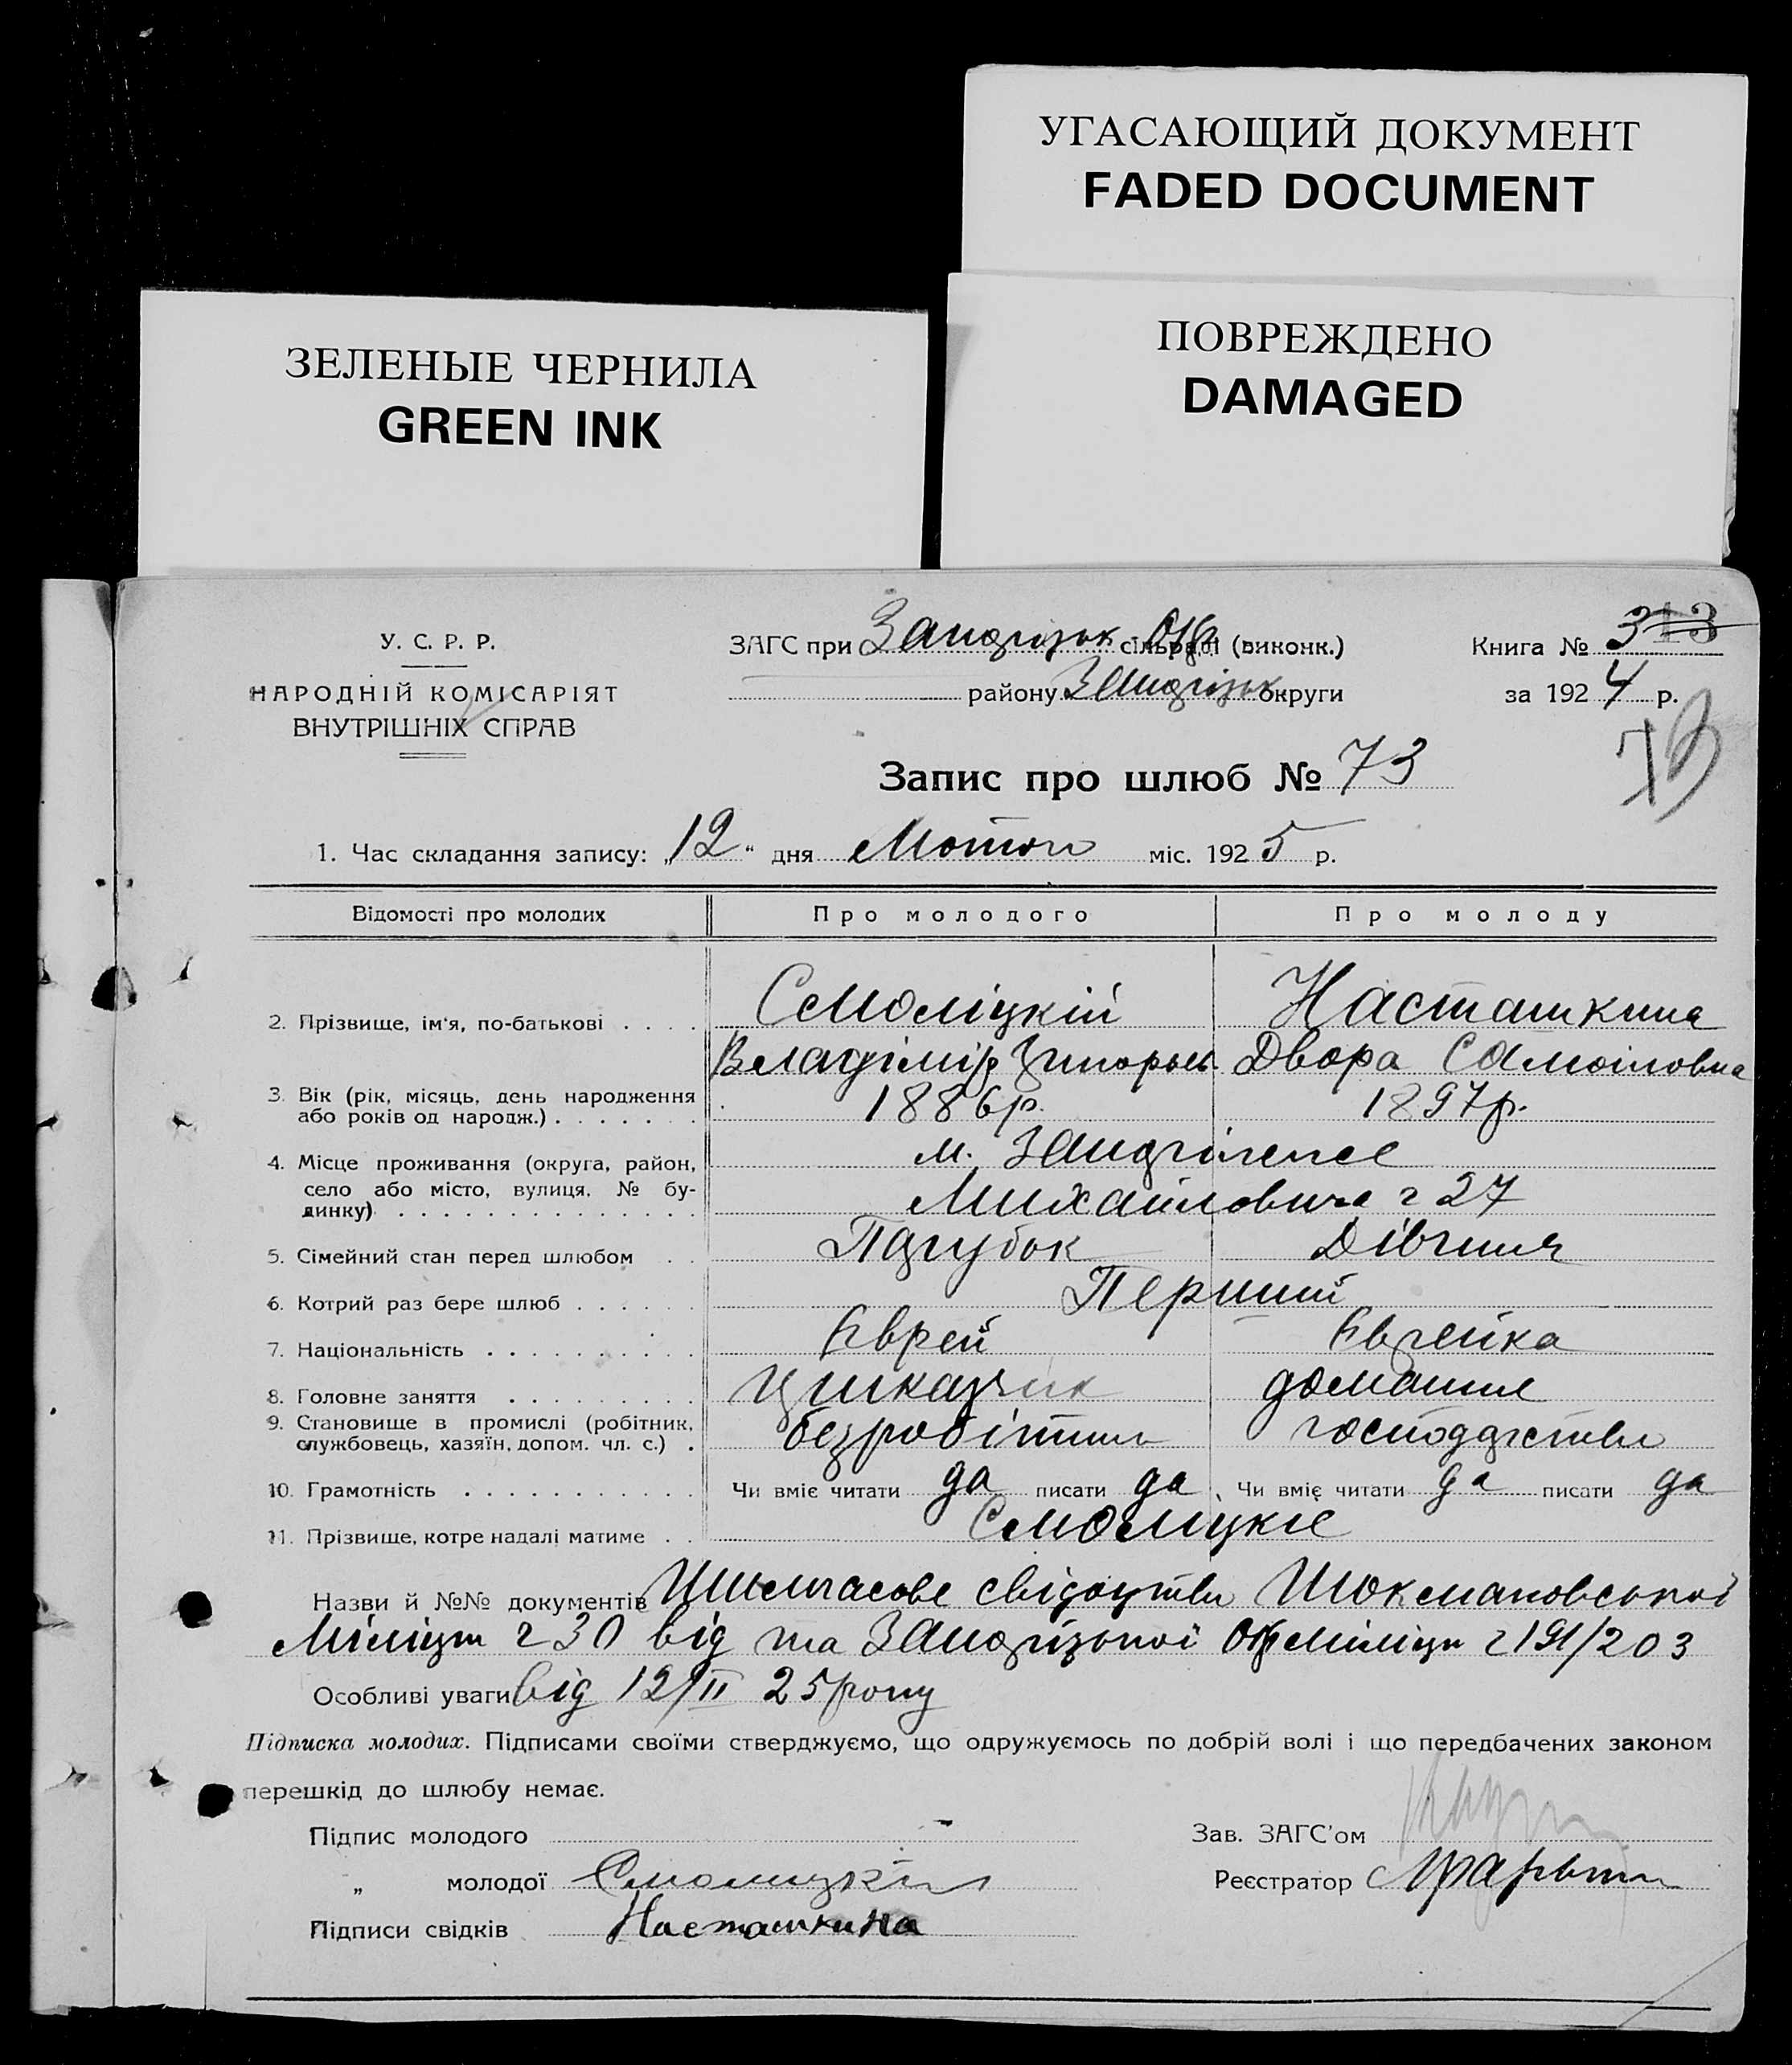 УГАСАЮЩИЙ ДОКУМЕНТ
FADED DOCUMENT
ЗЕЛЕНЫЕ ЧЕРНИЛА
GREEN INK
ПОВРЕЖДЕНО
DAMAGED
У. С. Р. Р.
НАРОДНІЙ КОМІСАРІЯТ
ВНУТРІШНІХ СПРАВ
ЗАГС при сільраді (виконк.)
району округи
Книга № 3
за 1924 р.
73
Запис про шлюб № 73
1. Час складання запису: „12“ дня Лютого міс. 1925 р.
Відомості про молодих Про молодого Про молоду
2. Прізвище, ім'я, по-батькові . . . . Смоліцкій Насташкина
Владімір Двора Самойловна
3. Вік (рік, місяць, день народження 1886р. 1897р.
або років од народж.) . . . . . . .
4. Місце проживання (округа, район, м.
село або місто, вулиця, № бу-
динку) . . . . . . . . . . . . . . Михайловича ч 27
5. Сімейний стан перед шлюбом . . Парубок Дівчина
6. Котрий раз бере шлюб . . . . . . Перший
7. Національність . . . . . . . . . . Еврей Еврейка
8. Головне заняття . . . . . . . . . домашнє
9. Становище в промислі (робітник,
службовець, хазяїн, допом. чл. с.) . безробітний
10. Грамотність . . . . . . . . . . . Чи вміє читати да писати да Чи вміє читати да писати да
11. Прізвище, котре надалі матиме . . Смоліцкіе
Назви й №№ документів
Міліции ч 30 від та ч 191/203
Особливі уваги від 12/II 25 року
Підписка молодих. Підписами своїми стверджуємо, що одружуємось по добрій волі і що передбачених законом
перешкід до шлюбу немає.
Підпис молодого
„ молодої Смолицкій
Підписи свідків Насташкина
Зав. ЗАГС'ом
Реєстратор